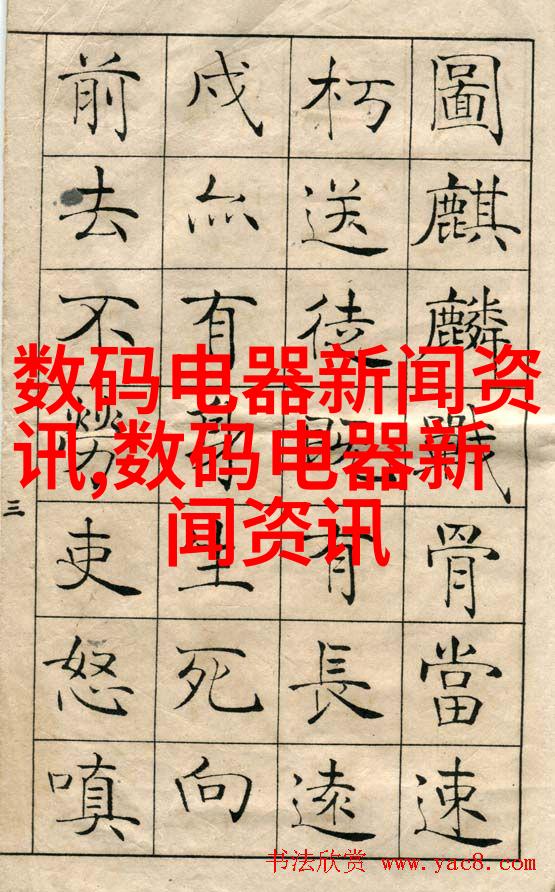 圖麒麟戰骨當速
朽送徒既有長遠
戍亦有身生死向
前去不勞吏怒嗔
三
数码电器新闻资
讯,数码电器新
闻资讯
书法欣赏 www.yac8.com